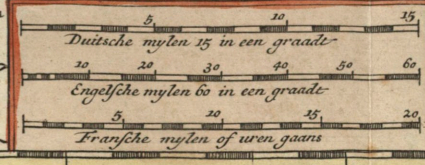 5 10 15
Duitsche mylen 15 in een graadt
10 20 30 40 50 60
Engelsche mylen 60 in een graadt
5 10 15 20
Fransche mylen of uren gaans